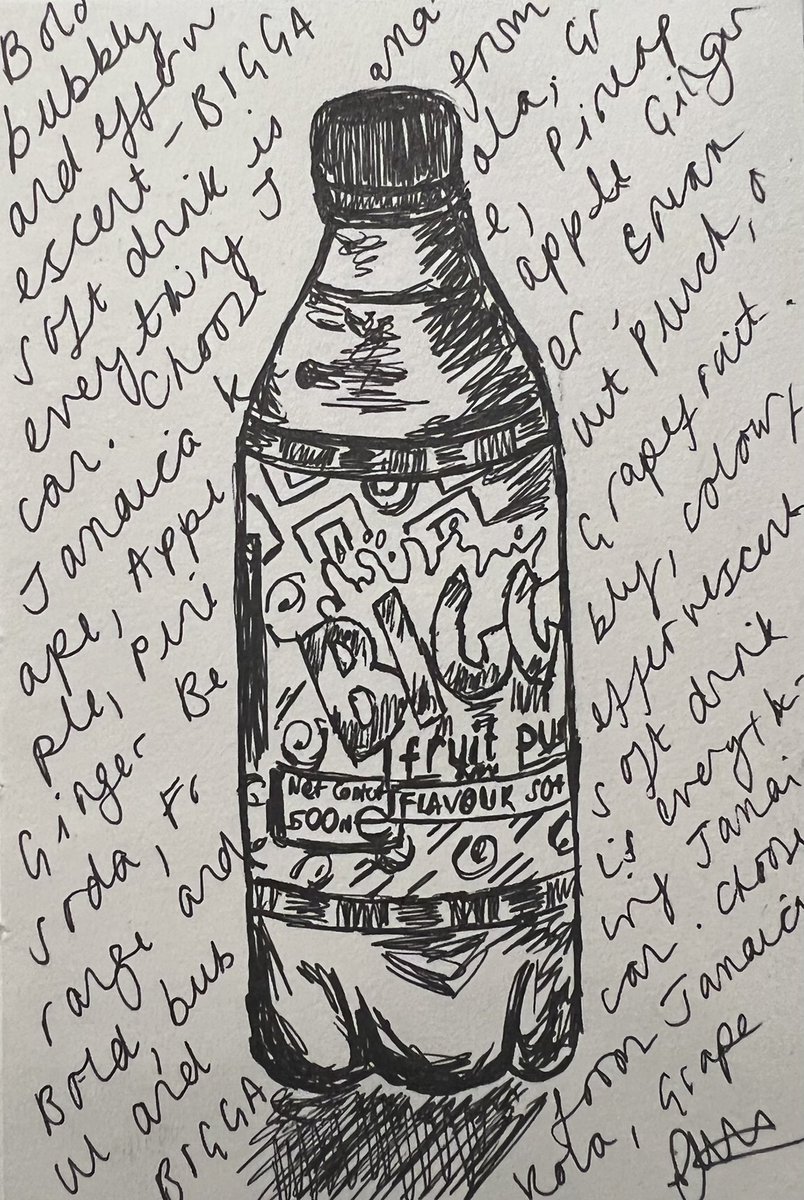 Bold
bubbly
and efferv
escent - BIGGA
soft drink is
everything J amai
can. Choose from
Jamaica K ola, Gr
ape, Appl e, Pineap
ple, Pine apple Ginger
Ginger Be er, Cream
soda, Fr uit punch, o
range and Grapefruit.
Bold, bub bly, colourf
ul and effervescent
BIGGA soft drink
is everyth-
ing Jamai
can. Choose
from Jamaica
Kola, Grape
BIGG
fruit pu
Net Content
500m
FLAVOUR SOF